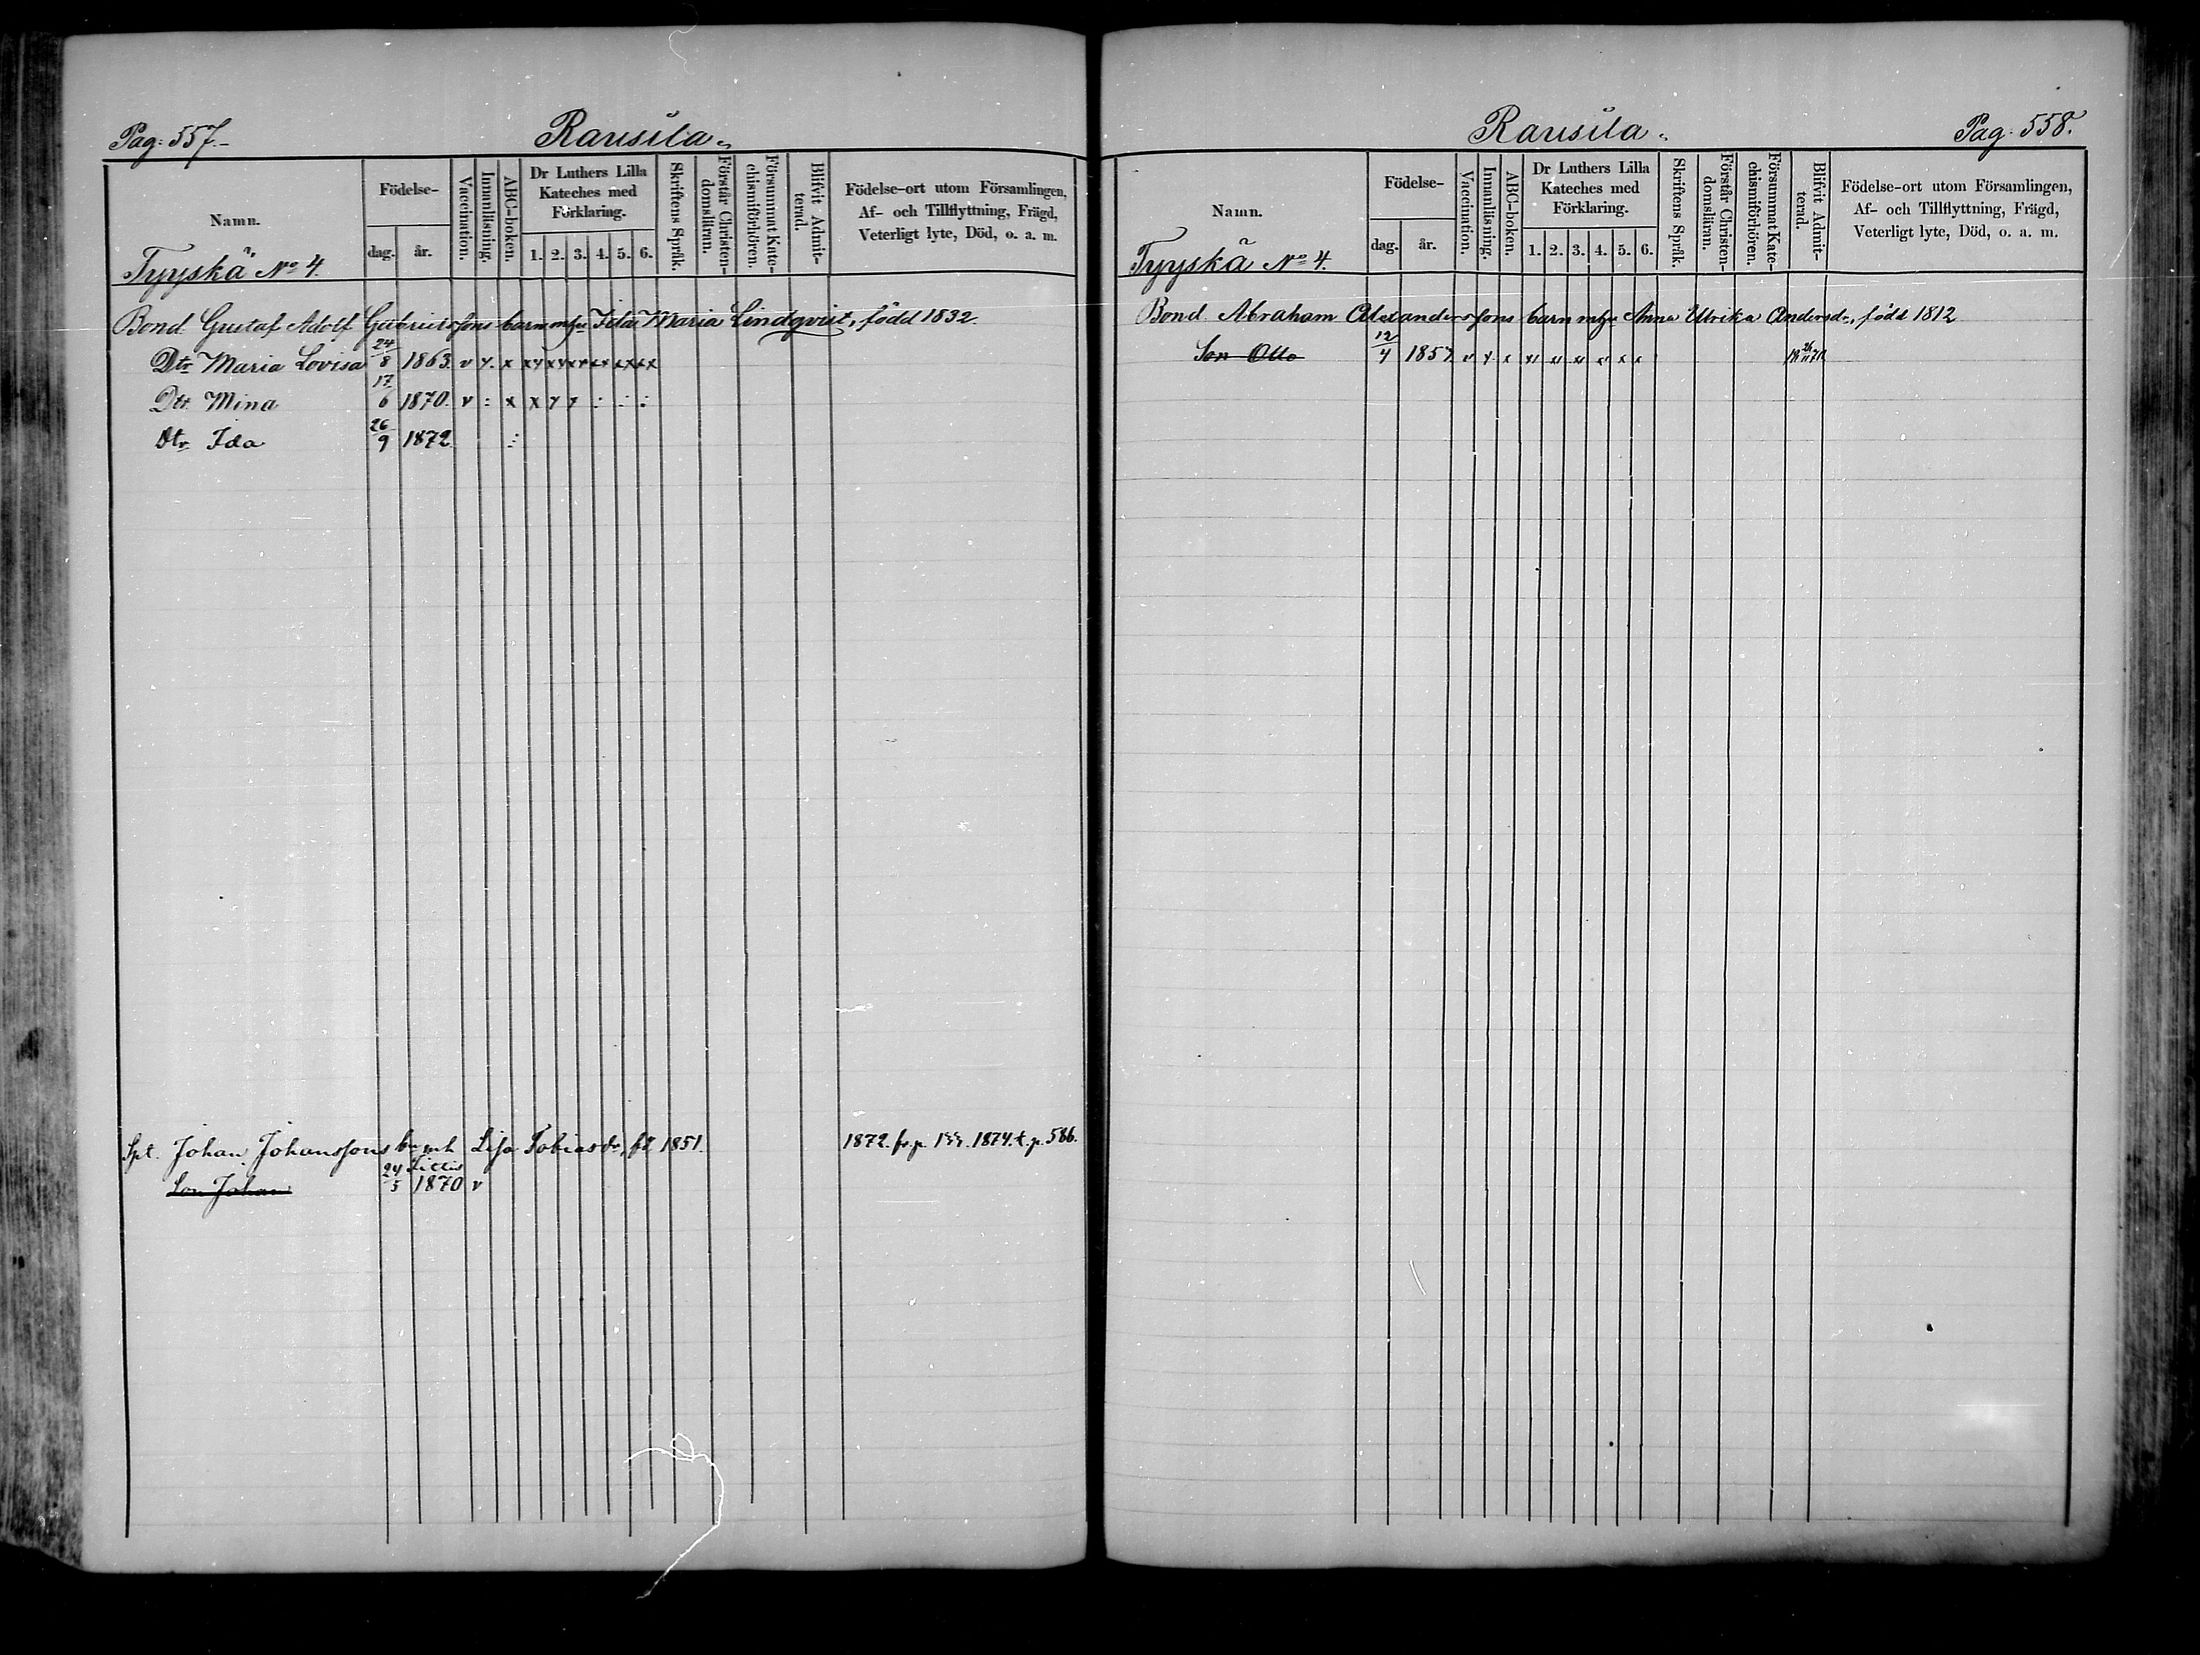 Pag: 557.
Rausila.
Namn.
Födelse-
dag.
år.
Vaccination.
Innanläsning.
ABC-boken.
Dr Luthers Lilla
Kateches med
Förklaring.
1. 2. 3. 4. 5. 6.
Skriftens Språk.
Förstår Christen-
domsläran.
Försummat Kate-
chismiförhören.
Blifvit Admit-
terad.
Födelse-ort utom Församlingen,
Af- och Tillflyttning, Frägd,
Veterligt lyte, Död, o. a. m.
Tyyskä No 4.
Bond. Gustaf Adolf Gabrielssons barn mhu Maria Lindqvist, född 1832.
Dtr Maria Lovisa 24/8 1863. v
Dtr Mina 17/6 1870. v
Dtr Ida 26/9 1872.
Spt. Johan Johanssons bn mh Lisa Tobiasdr, fd 1851. 1872. fr. p. 1874. t. p. 586.
Son Johan 24/5 1870 v
Rausila.
Pag. 558.
Namn.
Födelse-
dag.
år.
Vaccination.
Innanläsning.
ABC-boken.
Dr Luthers Lilla
Kateches med
Förklaring.
1. 2. 3. 4. 5. 6.
Skriftens Språk.
Förstår Christen-
domsläran.
Försummat Kate-
chismiförhören.
Blifvit Admit-
terad.
Födelse-ort utom Församlingen,
Af- och Tillflyttning, Frägd,
Veterligt lyte, Död, o. a. m.
Tyyskä No 4.
Bond. Abraham Alexanderssons barn mhu Anna Ulrika Andersdr, född 1812
Son Otto 12/4 1857. v